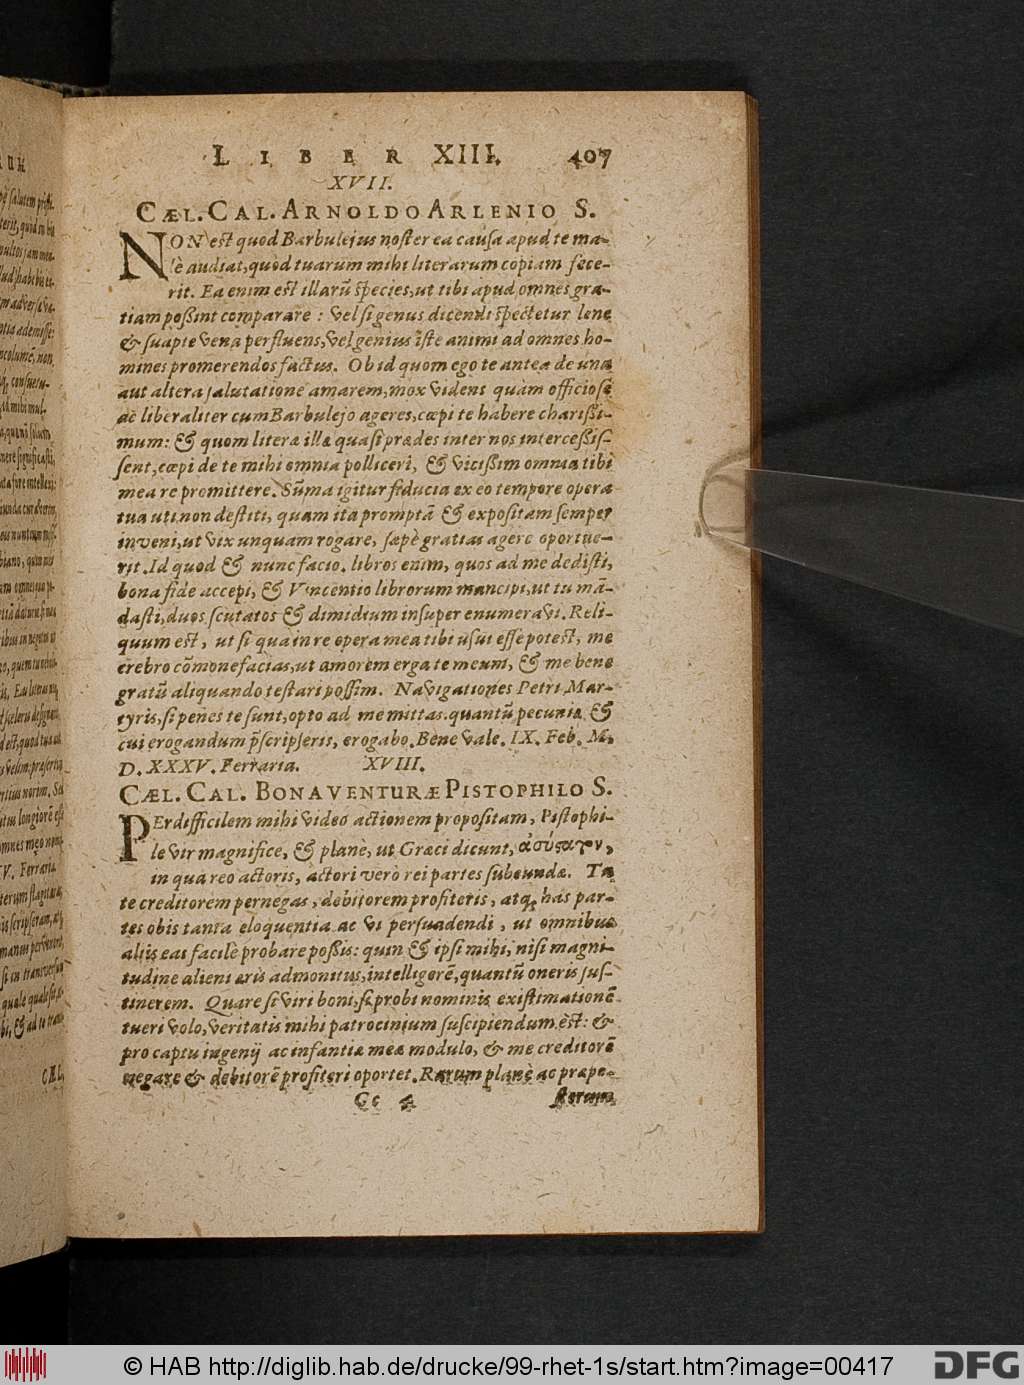 LIBER XIII. 407
XVII.
CÆL. CAL. ARNOLDO ARLENIO S.
NON est quod Barbulejus noster ea causa apud te ma-
lè audiat, quod tuarum mihi literarum copiam fece-
rit. Ea enim est illarũ species, ut tibi apud omnes gra-
tiam possint comparare: vel si genus dicendi spectetur lene
& suapte vena perfluens, vel genius iste animi ad omnes ho-
mines promerendos factus. Ob id quom ego te antea de una
aut altera salutatione amarem, mox videns quàm officiosè
ac liberaliter cum Barbulejo ageres, cœpi te habere charissi-
mum: & quom literæ illæ quasi prædes inter nos intercessis-
sent, cœpi de te mihi omnia polliceri, & vicissim omnia tibi
mea re promittere. Sũma igitur fiducia ex eo tempore opera
tua uti non destiti, quam ita promptã & expositam semper
inveni, ut vix unquam rogare, sæpè gratias agere oportue-
rit. Id quod & nunc facio. libros enim, quos ad me dedisti,
bona fide accepi, & Vincentio librorum mancipi, ut tu mã-
dasti, duos scutatos & dimidium insuper enumeravi. Reli-
quum est, ut si qua in re opera mea tibi usui esse potest, me
crebro cõmonefacias, ut amorem erga te meum, & me bene
gratũ aliquando testari possim. Navigationes Petri Mar-
tyris, si penes te sunt, opto ad me mittas. quantũ pecuniæ &
cui erogandum p̃scripseris, erogabo. Bene vale. IX. Feb. M.
D. XXXV. Ferraria. XVIII.
CÆL. CAL. BONAVENTURÆ PISTOPHILO S.
PErdifficilem mihi video actionem propositam, Pistophi-
le vir magnifice, & plane, ut Græci dicunt, ἀσύστατον,
in qua reo actoris, actori verò rei partes subeundæ. Tu
te creditorem pernegas, debitorem profiteris, atq; has par-
tes obis tanta eloquentia ac vi persuadendi, ut omnibus
aliis eas facilè probare possis: quin & ipsi mihi, nisi magni-
tudine alieni æris admonitus, intelligerẽ, quantũ oneris sus-
tinerem. Quare si viri boni, si probi nominis existimationẽ
tueri volo, veritatis mihi patrocinium suscipiendum est: &
pro captu ingenij ac infantiæ meæ modulo, & me creditorẽ
negare & debitorẽ profiteri oportet. Rarum planè ac præpe-
Cc 4 sterum
CÆL.
© HAB http://diglib.hab.de/drucke/99-rhet-1s/start.htm?image=00417
DFG